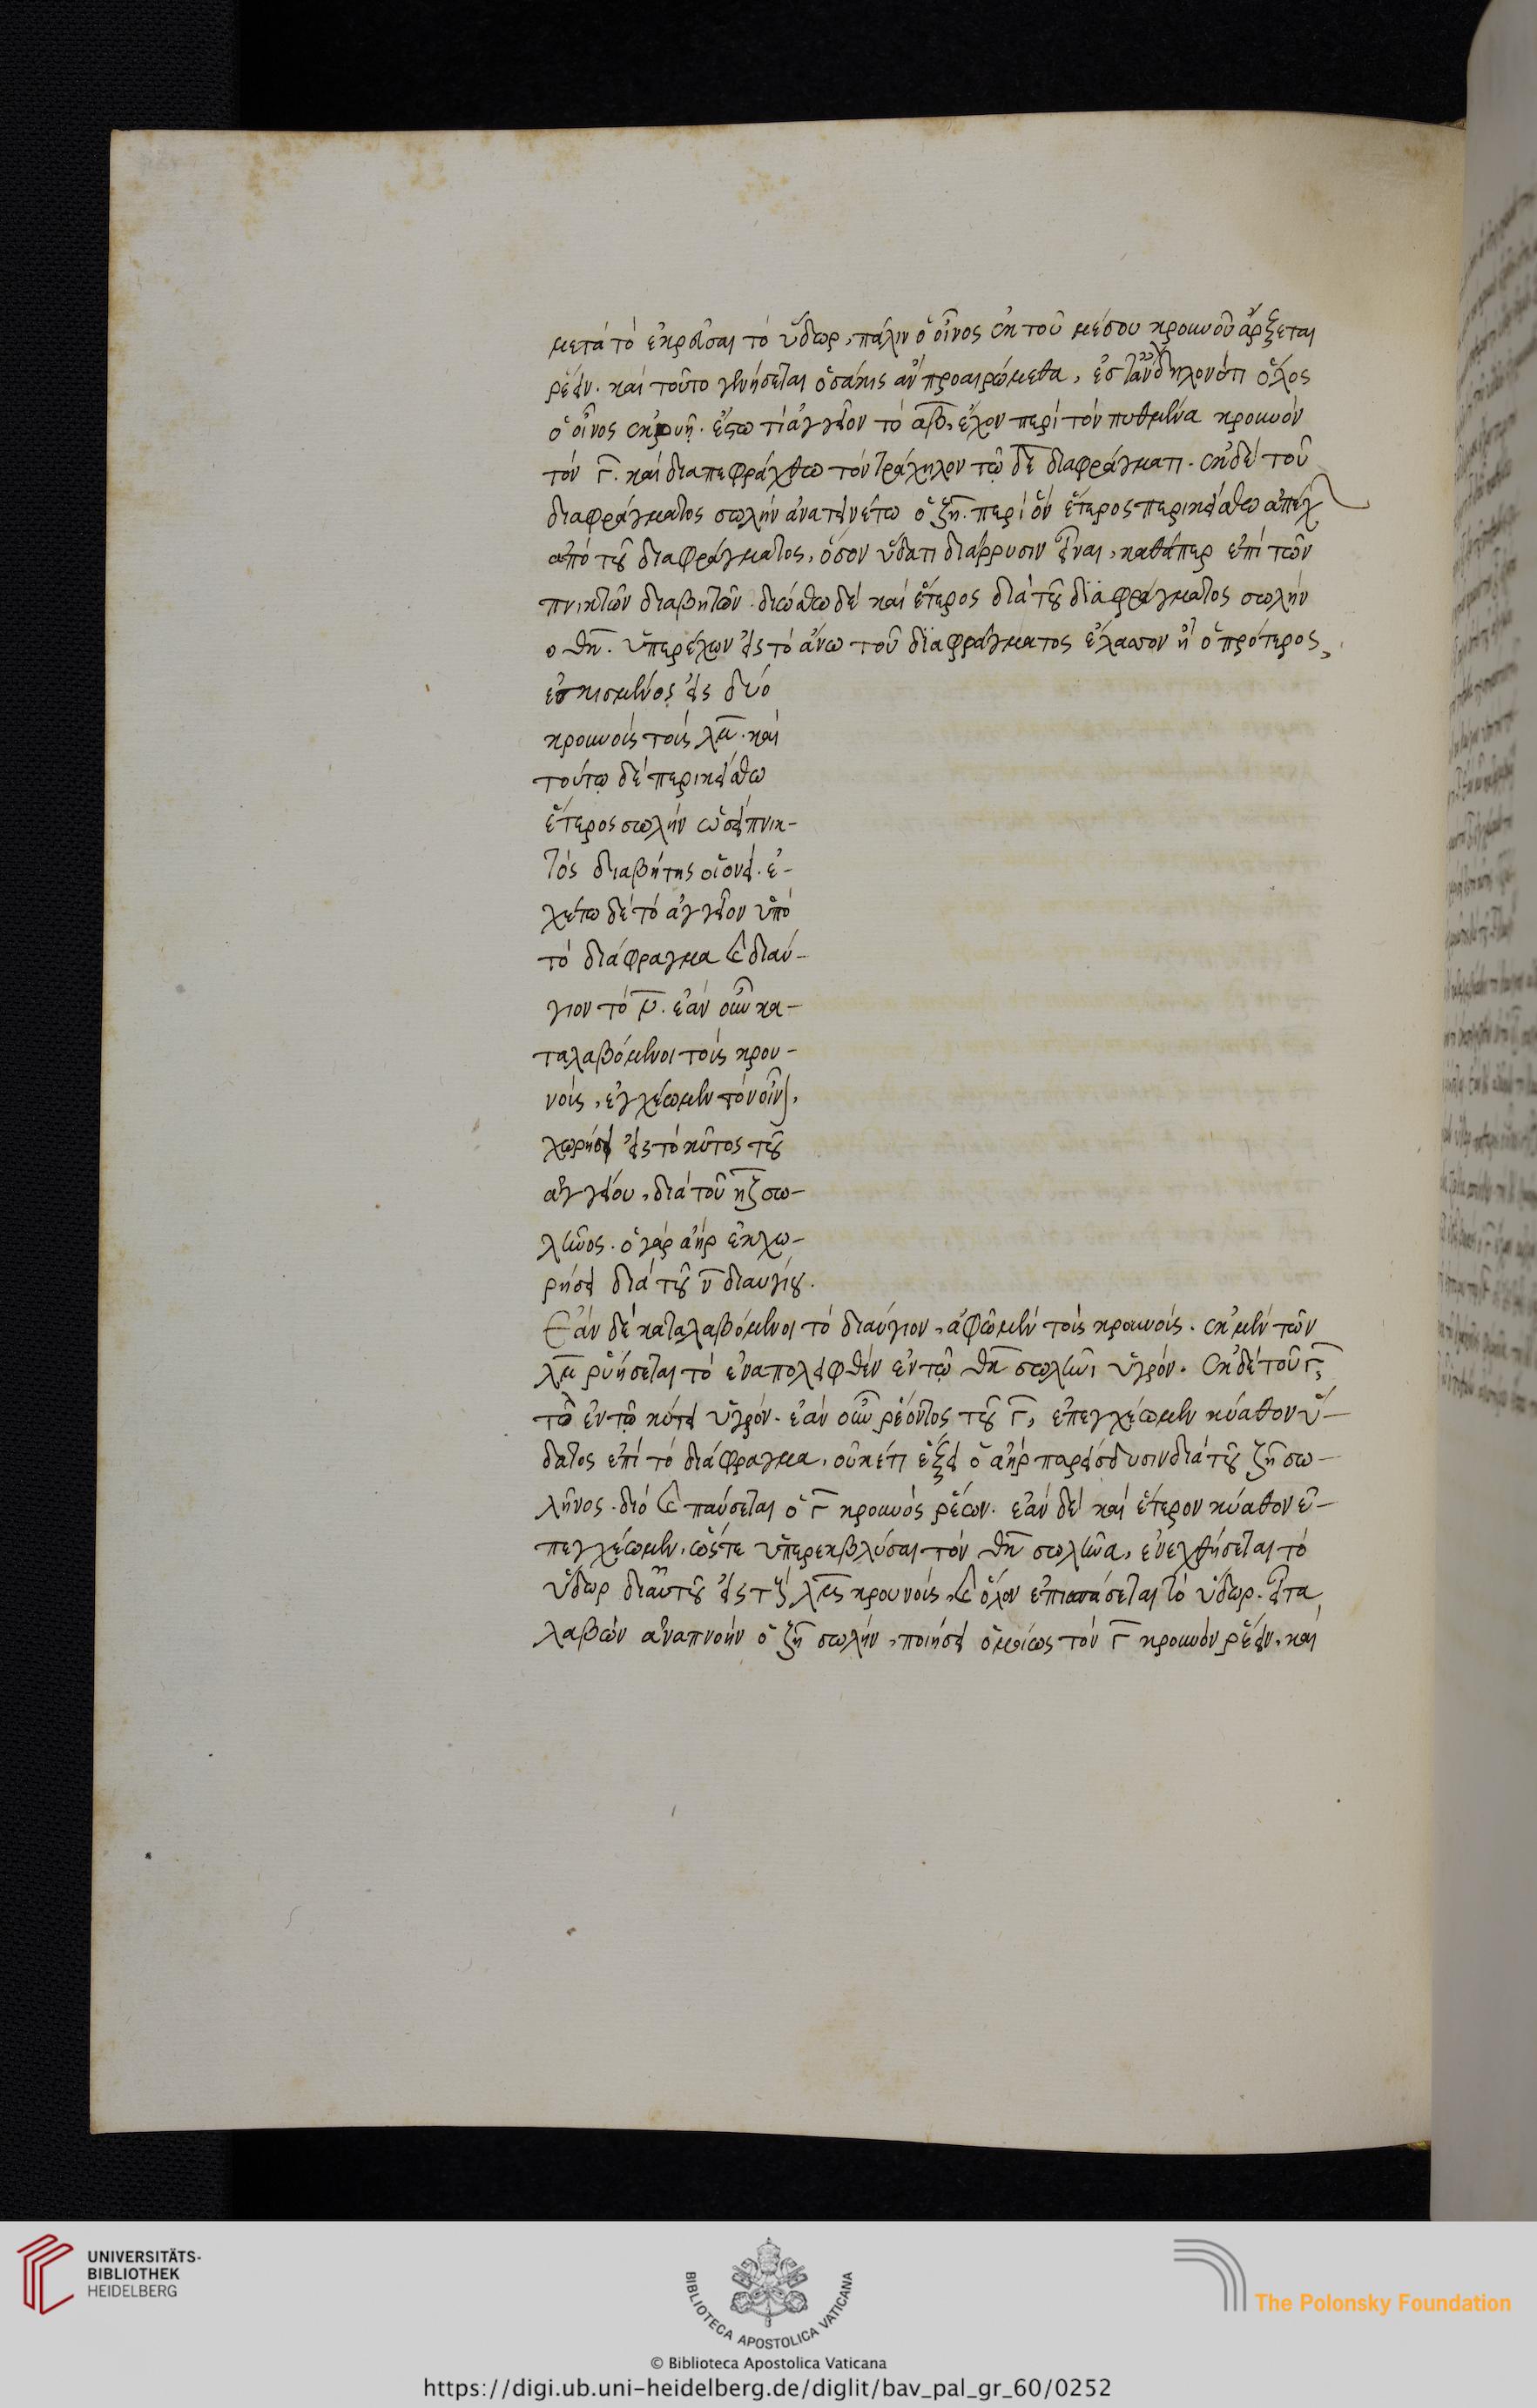 μετὰ τὸ ἐκρεῦσαι τὸ ὕδωρ, πάλιν ὁ οἶνος ἐκ τοῦ μέσου κρουνοῦ ἄρξεται
ῥεῖν. καὶ τοῦτο γενήσεται ὁσάκις ἂν προαιρώμεθα, δηλονότι ὅλος
ὁ οἶνος ἐκρυῇ. ἔστω τὶ ἀγγεῖον τὸ αβ, ἔχον περὶ τὸν πυθμένα κρουνὸν
τὸν γ. καὶ διαπεφράχθω τὸν τράχηλον τῷ δε διαφράγματι. ἐκ δὲ τοῦ
διαφράγματος σωλὴν ἀνατεινέτω ὁ ζη. περὶ ὃν ἕτερος περικείσθω ἀπέχ
ἀπὸ τοῦ διαφράγματος, ὅσον ὕδατι διάρρυσιν εἶναι, καθάπερ ἐπὶ τῶν
πνικτῶν διαβητῶν. διώσθω δὲ καὶ ἕτερος διὰ τοῦ διαφράγματος σωλὴν
ὁ θκ. ὑπερέχων εἰς τὸ ἄνω τοῦ διαφράγματος ἔλασσον ἢ ὁ πρότερος,
ἐσχισμένος εἰς δύο
κρουνοὺς τοὺς λμ. καὶ
τούτῳ δὲ περικείσθω
ἕτερος σωλὴν ὡσεὶ πνικ-
τὸς διαβήτης οἱονεί. ἐ-
χέτω δὲ τὸ ἀγγεῖον ὑπὸ
τὸ διάφραγμα καὶ διαύ-
γιον τὸ ν. ἐὰν οὖν κα-
ταλαβόμενοι τοὺς κρου-
νοὺς, ἐγχέωμεν τὸν οἶνον,
χωρήσει εἰς τὸ κύτος τοῦ
ἀγγείου, διὰ τοῦ ηζ σω-
λῆνος. ὁ γὰρ ἀὴρ ἐκχω-
ρήσει διὰ τοῦ ν διαυγίου.
Ἐὰν δὲ καταλαβόμενοι τὸ διαύγιον, ἀφῶμεν τοὺς κρουνούς. ἐκ μὲν τῶν
λμ ῥυήσεται τὸ ἐναπολειφθὲν ἐν τῷ θκ σωλῆνι ὑγρόν. ἐκ δὲ τοῦ γ,
τὸ ἐν τῷ κύτει ὑγρόν. ἐὰν οὖν ῥέοντος τοῦ γ, ἐπεγχέωμεν κύαθον ὕ-
δατος ἐπὶ τὸ διάφραγμα, οὐκέτι ἕξει ὁ ἀὴρ παρείσδυσιν διὰ τοῦ ζη σω-
λῆνος. διὸ καὶ παύσεται ὁ γ κρουνὸς ῥέων. ἐὰν δὲ καὶ ἕτερον κύαθον ἐ-
πεγχέωμεν, ὥστε ὑπερεκβλύσαι τὸν θκ σωλῆνα, ἐνεχθήσεται τὸ
ὕδωρ δι' αὐτοῦ εἰς τοὺς λμ κρουνοὺς, καὶ ὅλον ἐπισπάσεται τὸ ὕδωρ. εἶτα
λαβὼν ἀναπνοὴν ὁ ζη σωλὴν, ποιήσει ὁμοίως τὸν γ κρουνὸν ῥεῖν, καὶ
UNIVERSITÄTS-
BIBLIOTHEK
HEIDELBERG
BIBLIOTECA APOSTOLICA VATICANA
The Polonsky Foundation
© Biblioteca Apostolica Vaticana
https://digi.ub.uni-heidelberg.de/diglit/bav_pal_gr_60/0252